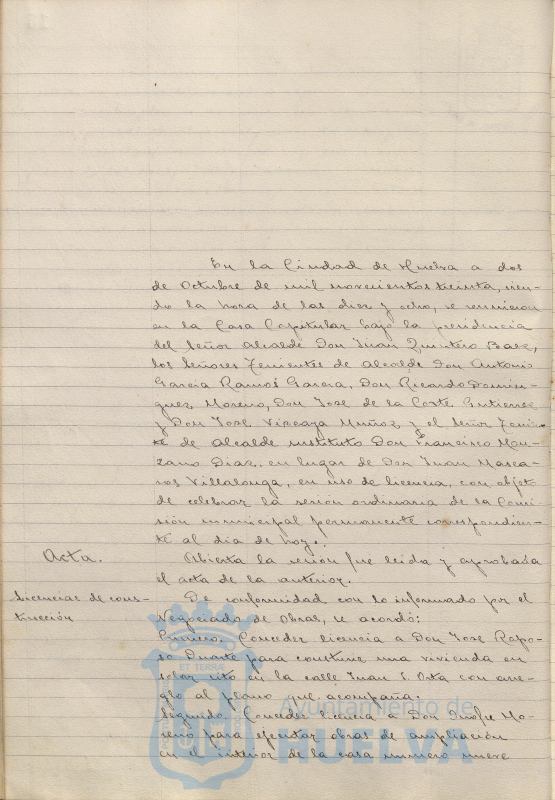 En la Ciudad de Huelva a dos
de Octubre de mil novecientos treinta, sien-
do la hora de las diez y ocho, se reunieron
en la Casa Capitular bajo la presidencia
del Señor Alcalde Don Juan Quintero Baez,
los Señores Tenientes de Alcalde Don Antonio
García Ramos García, Don Ricardo Domin-
guez Moreno, Don José de la Corte Gutierrez
y Don José Vizcaya Muñoz y el Señor Tenien-
te de Alcalde sustituto Don Francisco Man-
zano Díaz, en lugar de Don Juan Masca-
ros Villalonga, en uso de licencia, con objeto
de celebrar la sesion ordinaria de la Comi-
sión municipal permanente correspondien-
te al dia de hoy.
Acta. Abierta la sesion fue leida y aprobada
el acta de la anterior.
Licencias de cons-
trucción
De conformidad con lo informado por el
Negociado de Obras, se acordó:
Primero. Conceder licencia a Don José Rapo-
so Duarte para construir una vivienda en
solar sito en la calle Juan S. Orta con arre-
glo al plano que acompaña.
Segundo. Conceder licencia a Don Onofre Mo-
reno para ejecutar obras de ampliación
en el interior de la casa numero nueve
Ayuntamiento de
HUELVA